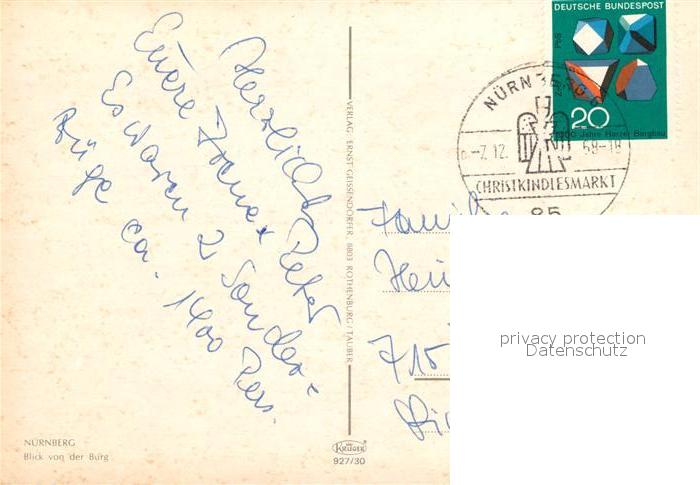 Herzlichst
Eure Irene + Peter
Es waren 2 Sonder=
züge ca. 1400 Pers.
NÜRNBERG
Blick von der Burg
VERLAG ERNST GEISSENDÖRFER, 8803 ROTHENBURG/TAUBER
KRÜGER
927/30
DEUTSCHE BUNDESPOST
PbS
20
1000 Jahre Harzer Bergbau
NÜRNBERG
-7.12. 68-18
CHRISTKINDLESMARKT
85
Familie
privacy protection
Datenschutz